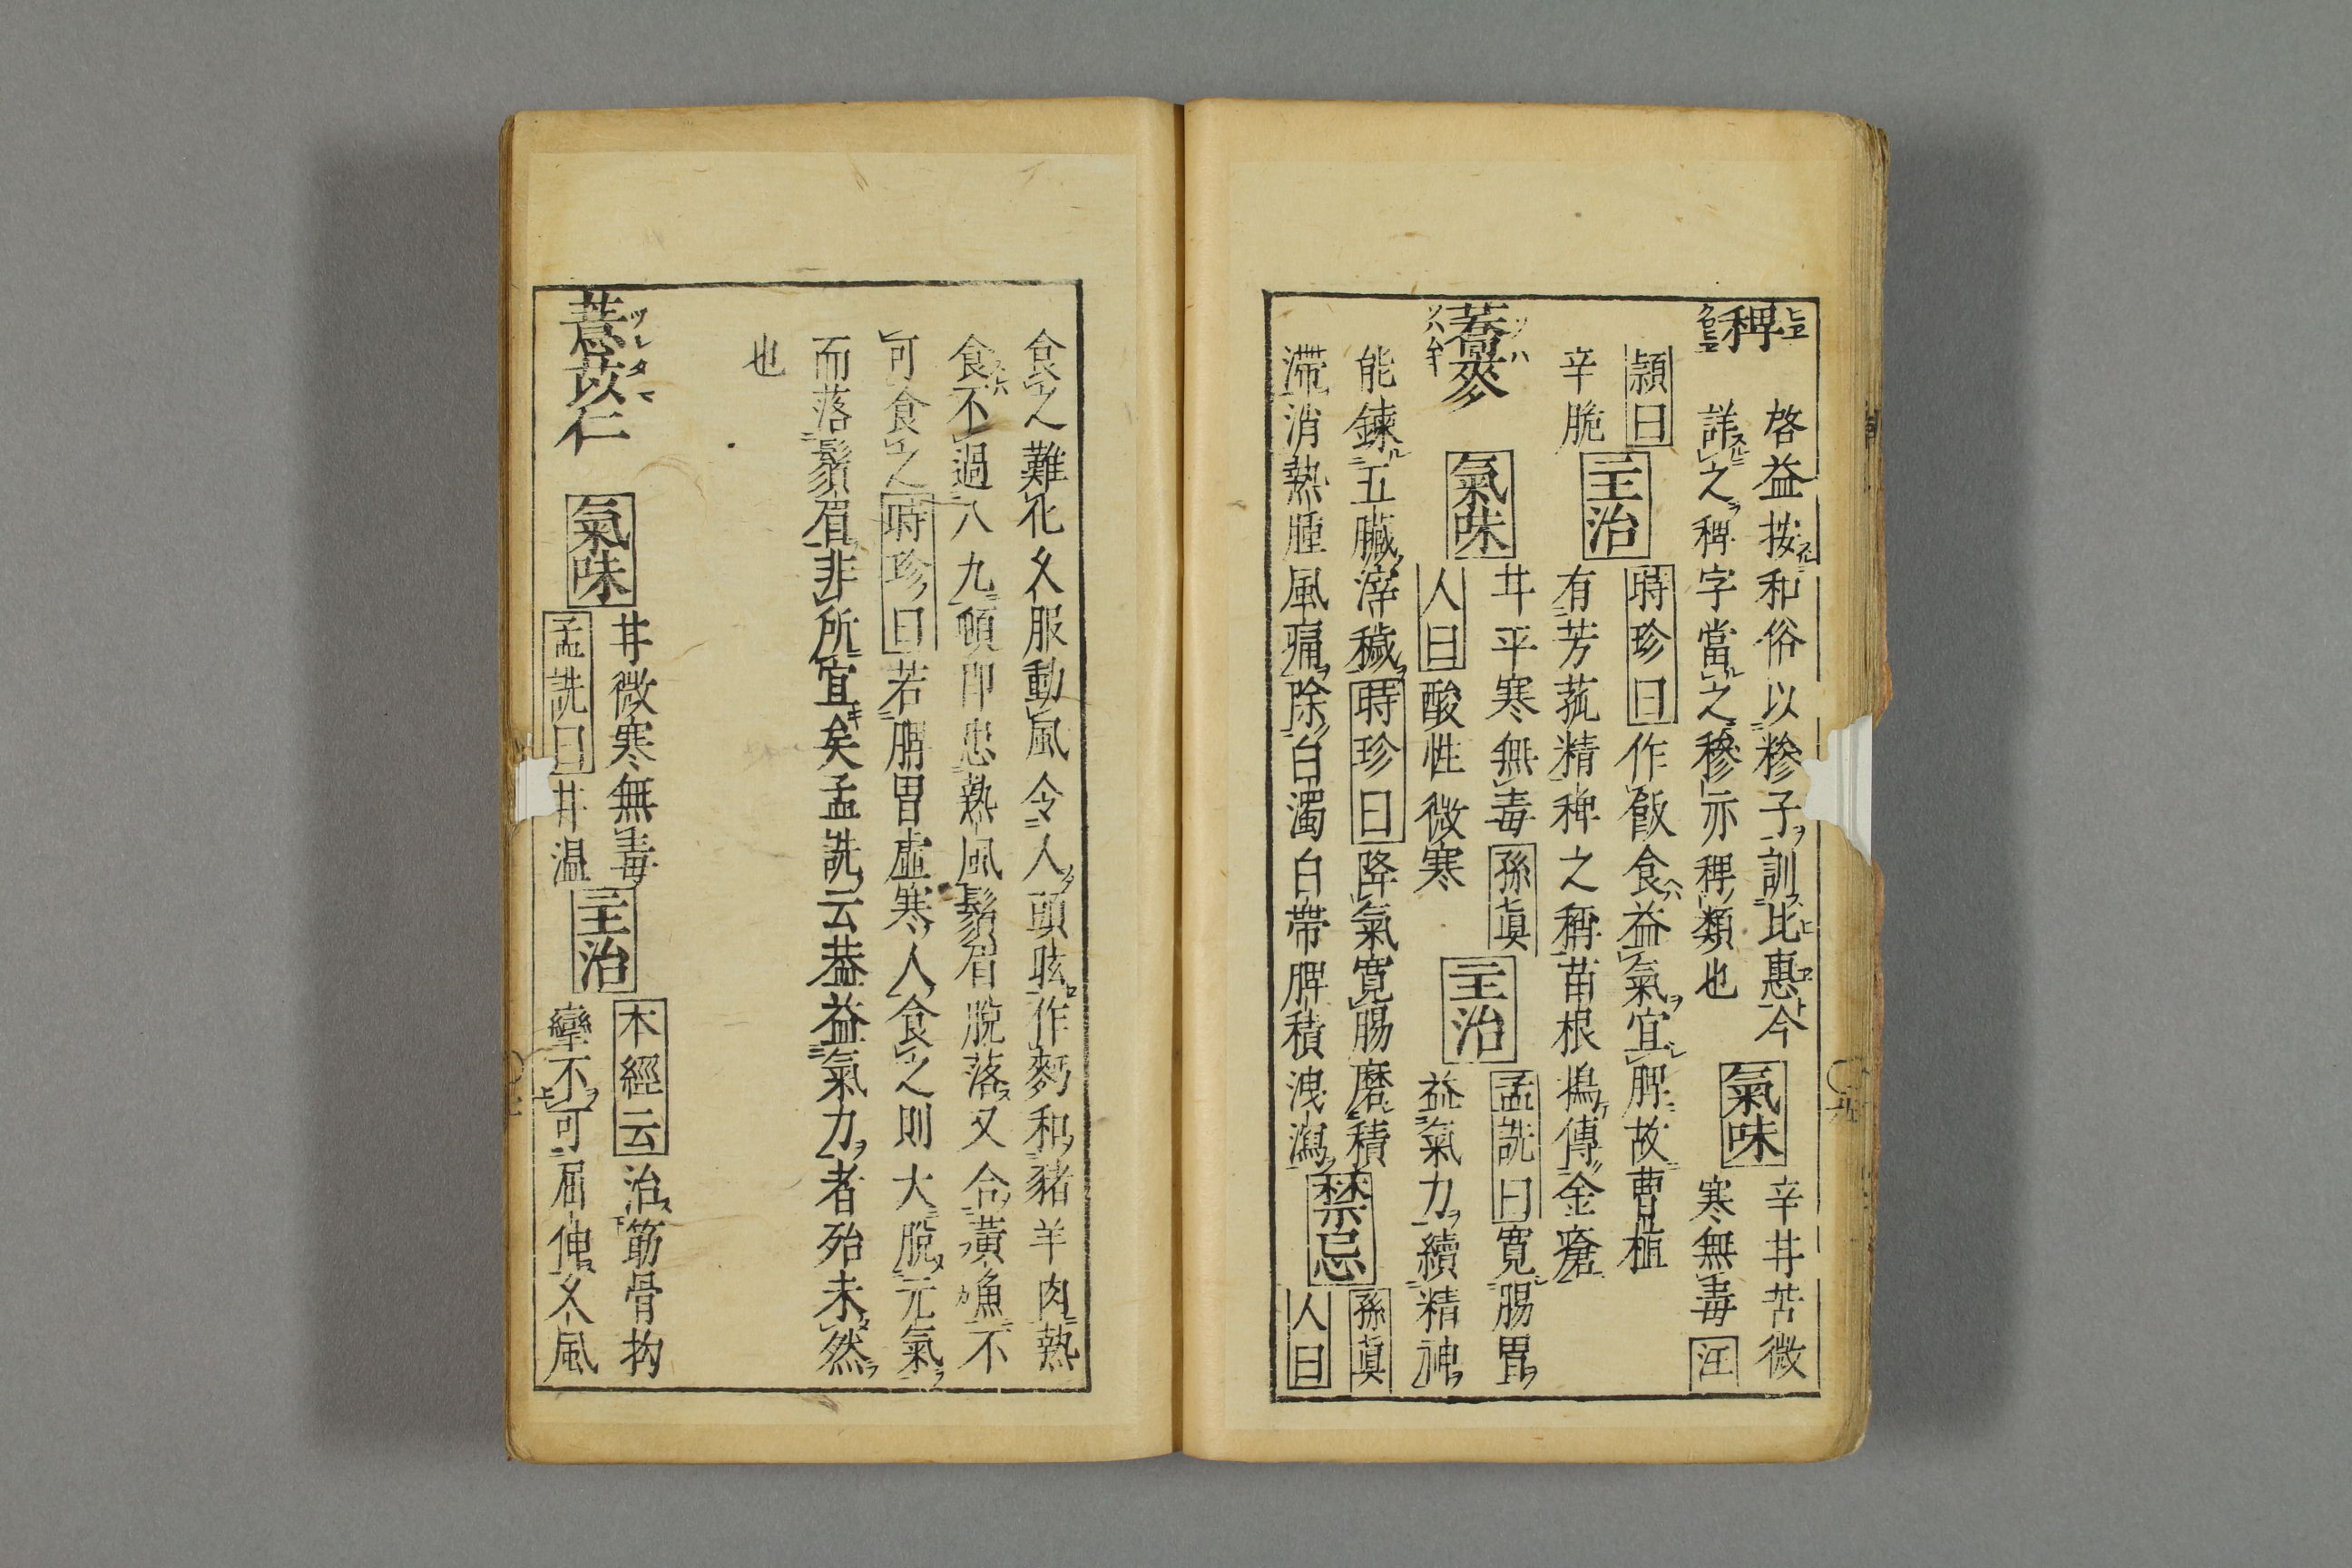 稗 啓益按和俗以糝子訓比惠今 氣味 辛甘苦微
詳之稗字當之穇亦稗類也 寒無毒 汪
頴曰 主治 時珍曰 作飯食益氣宜脾故曹植
辛脆 有芳菰精稗之稱苗根搗傳金瘡
蕎麥 氣味 甘平寒無毒 孫眞 主治 孟詵曰 寛腸胃
人曰 酸性微寒 益氣力續精神
能鍊五臟滓穢 時珍曰 降氣寛腸磨積 禁忌 孫眞
滯消熱腫風痛除白濁白帶脾積洩瀉 人曰
食之難化久服動風令人頭眩作麪和豬羊肉熱
食不過八九頓即患熱風鬚眉脫落又合黃魚不
可食之 時珍曰 若脾胃虛寒人食之則大脫元氣
而落鬚眉非所宜矣孟詵云益氣力者殆未然
也
薏苡仁 氣味 甘微寒無毒 主治 本經云 治筋骨拘
孟詵曰 甘温 攣不可屈伸久風